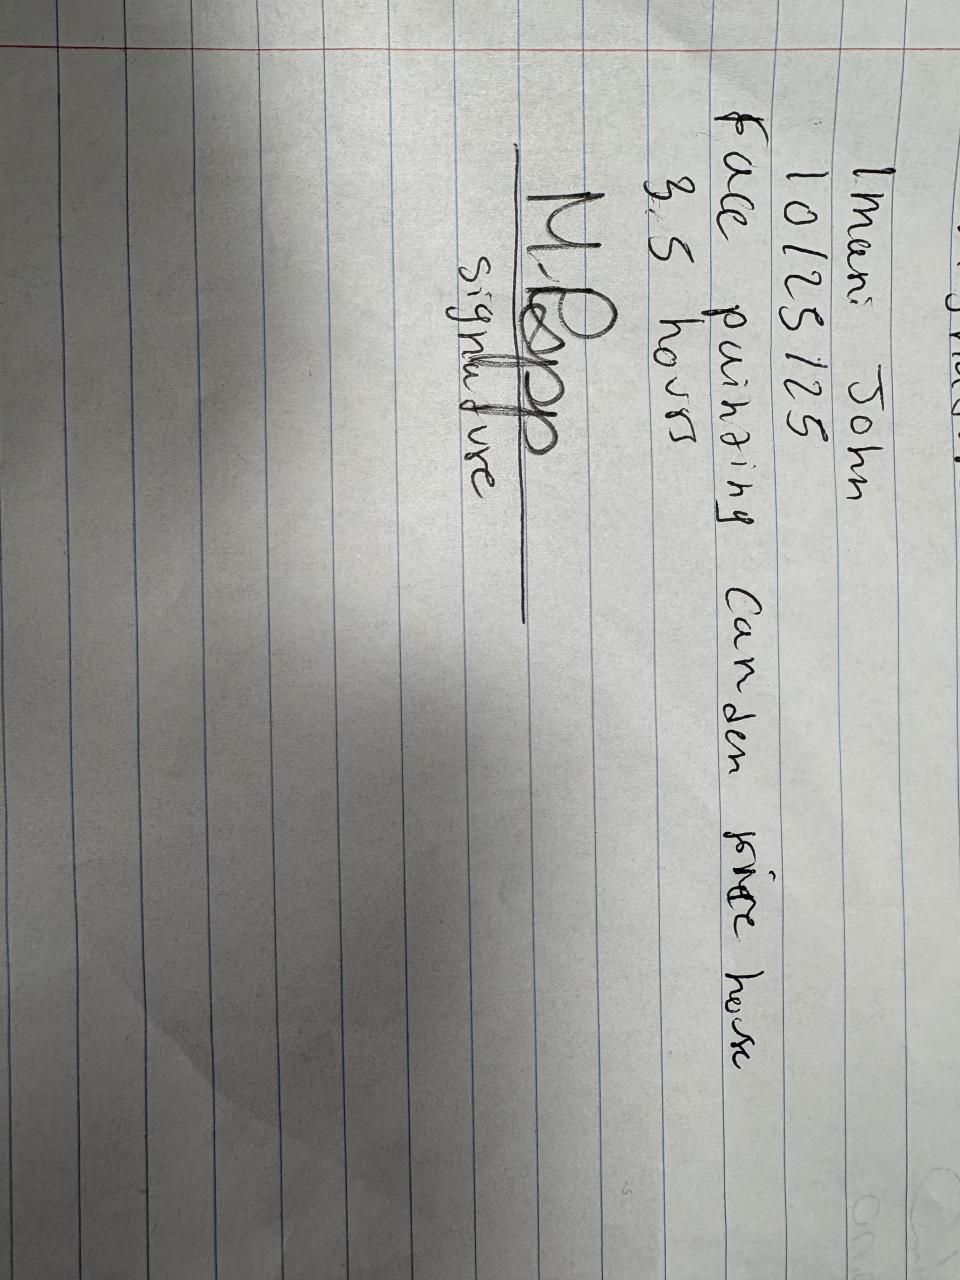 Imani John
10/25/25
Face painting Camden fire house
3.5 hours
M. Pepp
signature